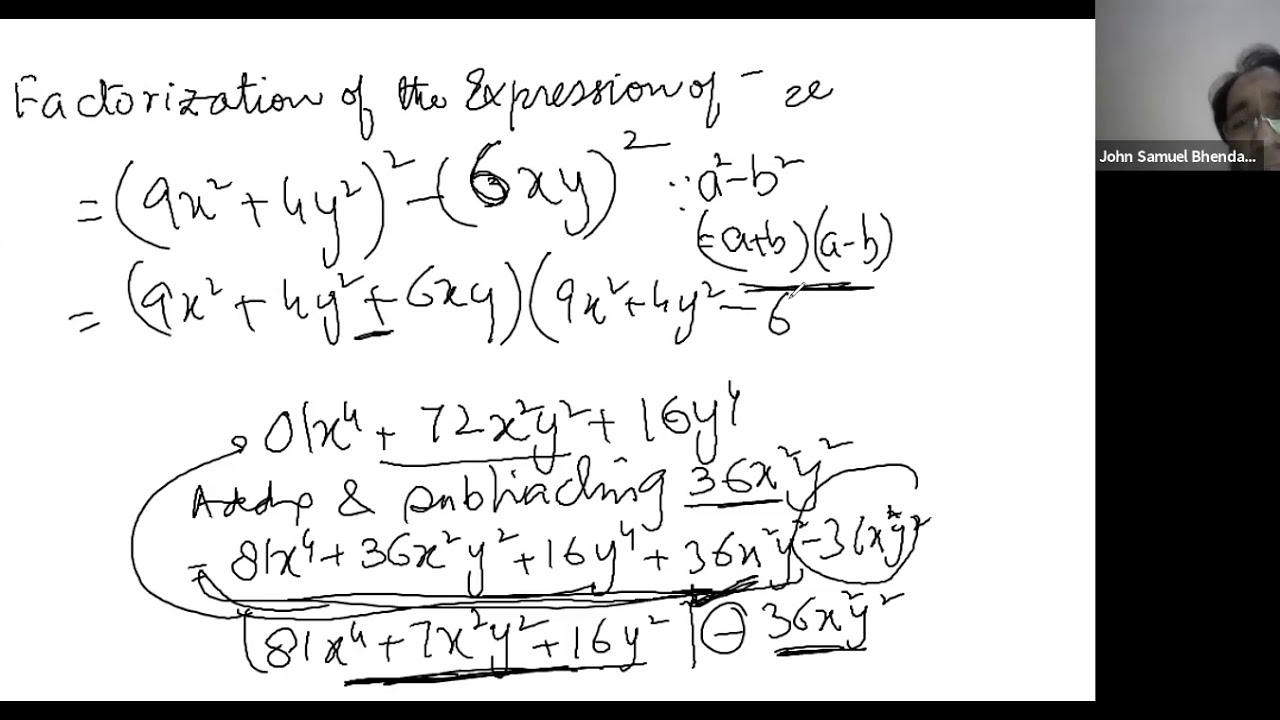 Factorization of the Expression of - ze
= (9x² + 4y²)² - (6xy)² ∵ a² - b²
(= a+b)(a-b)
= (9x² + 4y² + 6xy)(9x² + 4y² - 6
81x⁴ + 72x²y² + 16y⁴
Adding & subtracting 36x²y²
= 81x⁴ + 36x²y² + 16y⁴ + 36x²y² - 36x²y²
(81x⁴ + 7x²y² + 16y² ) - 36x²y²
John Samuel Bhenda...